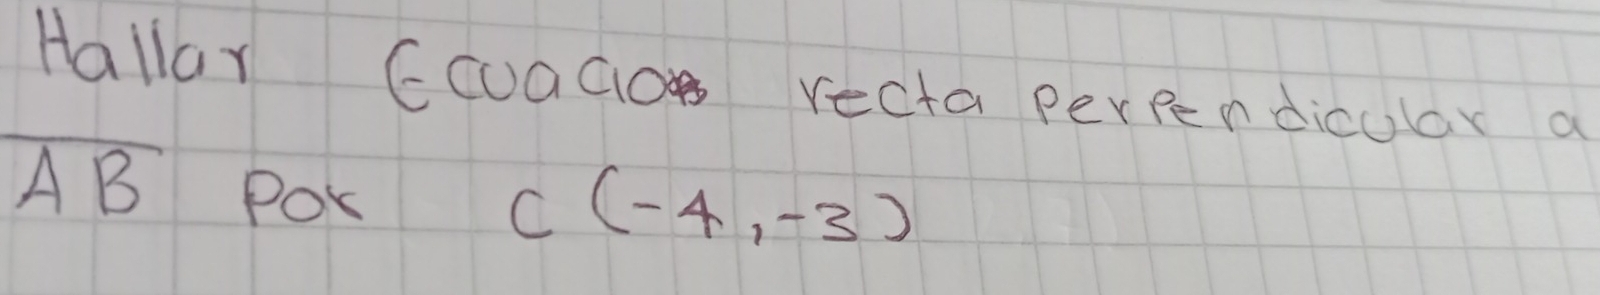 Hallar Ecuacion recta perpendicular a
AB por C (-4,-3)